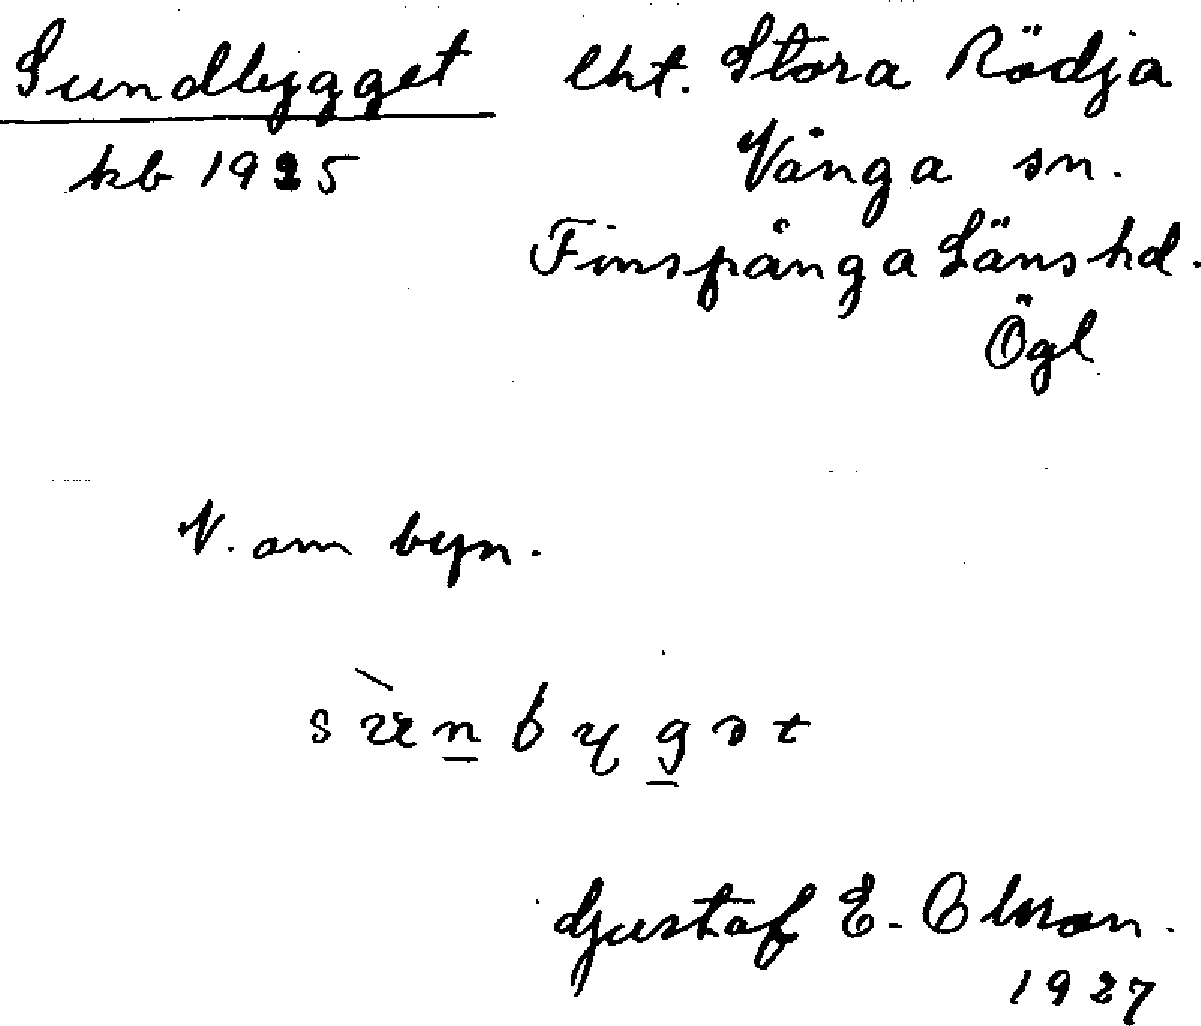 Sundbygget lht. Stora Rödja
kb 1925 Vånga sn.
Finspånga Läns hd.
Ögl
N. om byn.
Gustaf E. Olson.
1927